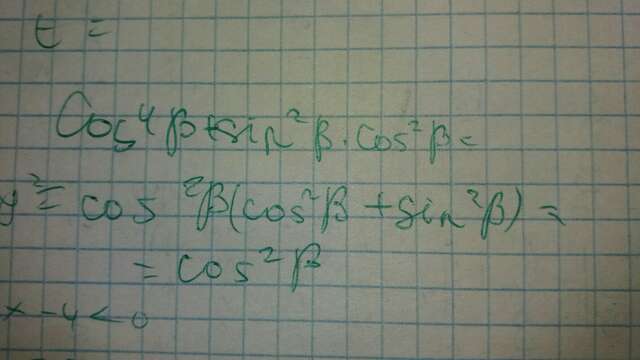 t =
Cos⁴β+sin²β·cos²β=
y²= cos²β(cos²β+sin²β)=
= cos²β
x-4<0